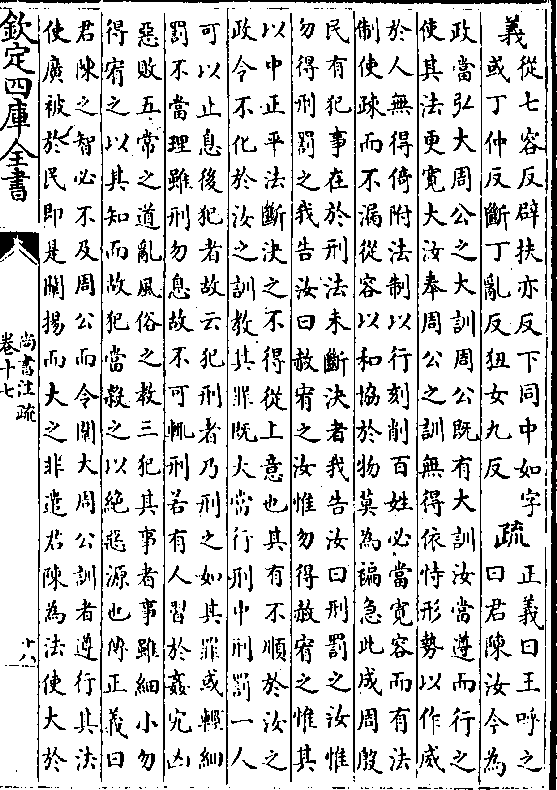 義從七容反辟扶亦反下同中如字
或丁仲反斷丁亂反狃女九反
疏
正義曰王呼之
曰君陳汝今為
政當弘大周公之大訓周公既有大訓汝當遵而行之
使其法更寛大汝奉周公之訓無得依恃形勢以作威
於人無得倚附法制以行刻削百姓必當寛容而有法
制使疎而不漏從容以和協於物莫為褊急此成周殷
民有犯事在於刑法未斷決者我告汝曰刑罰之汝惟
勿得刑罰之我告汝曰赦宥之汝惟勿得赦宥之惟其
以中正平法斷決之不得從上意也其有不順於汝之
政令不化於汝之訓教其罪既大當行刑中刑罰一人
可以止息後犯者故云犯刑者乃刑之如其罪或輕細
罰不當理雖刑勿息故不可輒刑若有人習於姦宄凶
惡敗五常之道亂風俗之教三犯其事者事雖細小勿
得宥之以其知而故犯當殺之以絶惡源也傳正義曰
君陳之智必不及周公而令闡大周公訓者遵行其法
使廣被於民即是闡揚而大之非遣君陳為法使大於
欽定四庫全書
尚書注疏
卷十七
十八